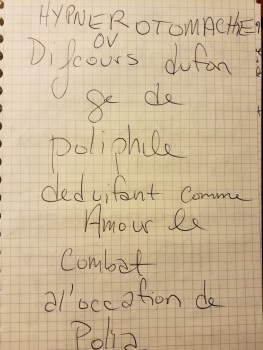 HYPNEROTOMACHIE
OV
Discours dufon
ge de
poliphile
deduisant comme
Amour le
Combat
al'occation de
Polia